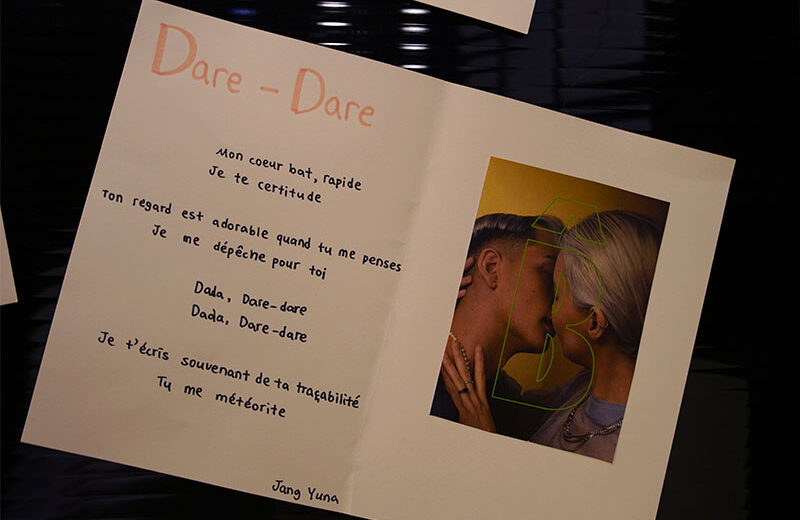 Dare - Dare
Mon coeur bat, rapide
Je te certitude
Ton regard est adorable quand tu me penses
Je me dépêche pour toi
Dada, Dare-dare
Dada, Dare-dare
Je t'écris souvenant de ta traçabilité
Tu me météorite
Jang Yuna
B